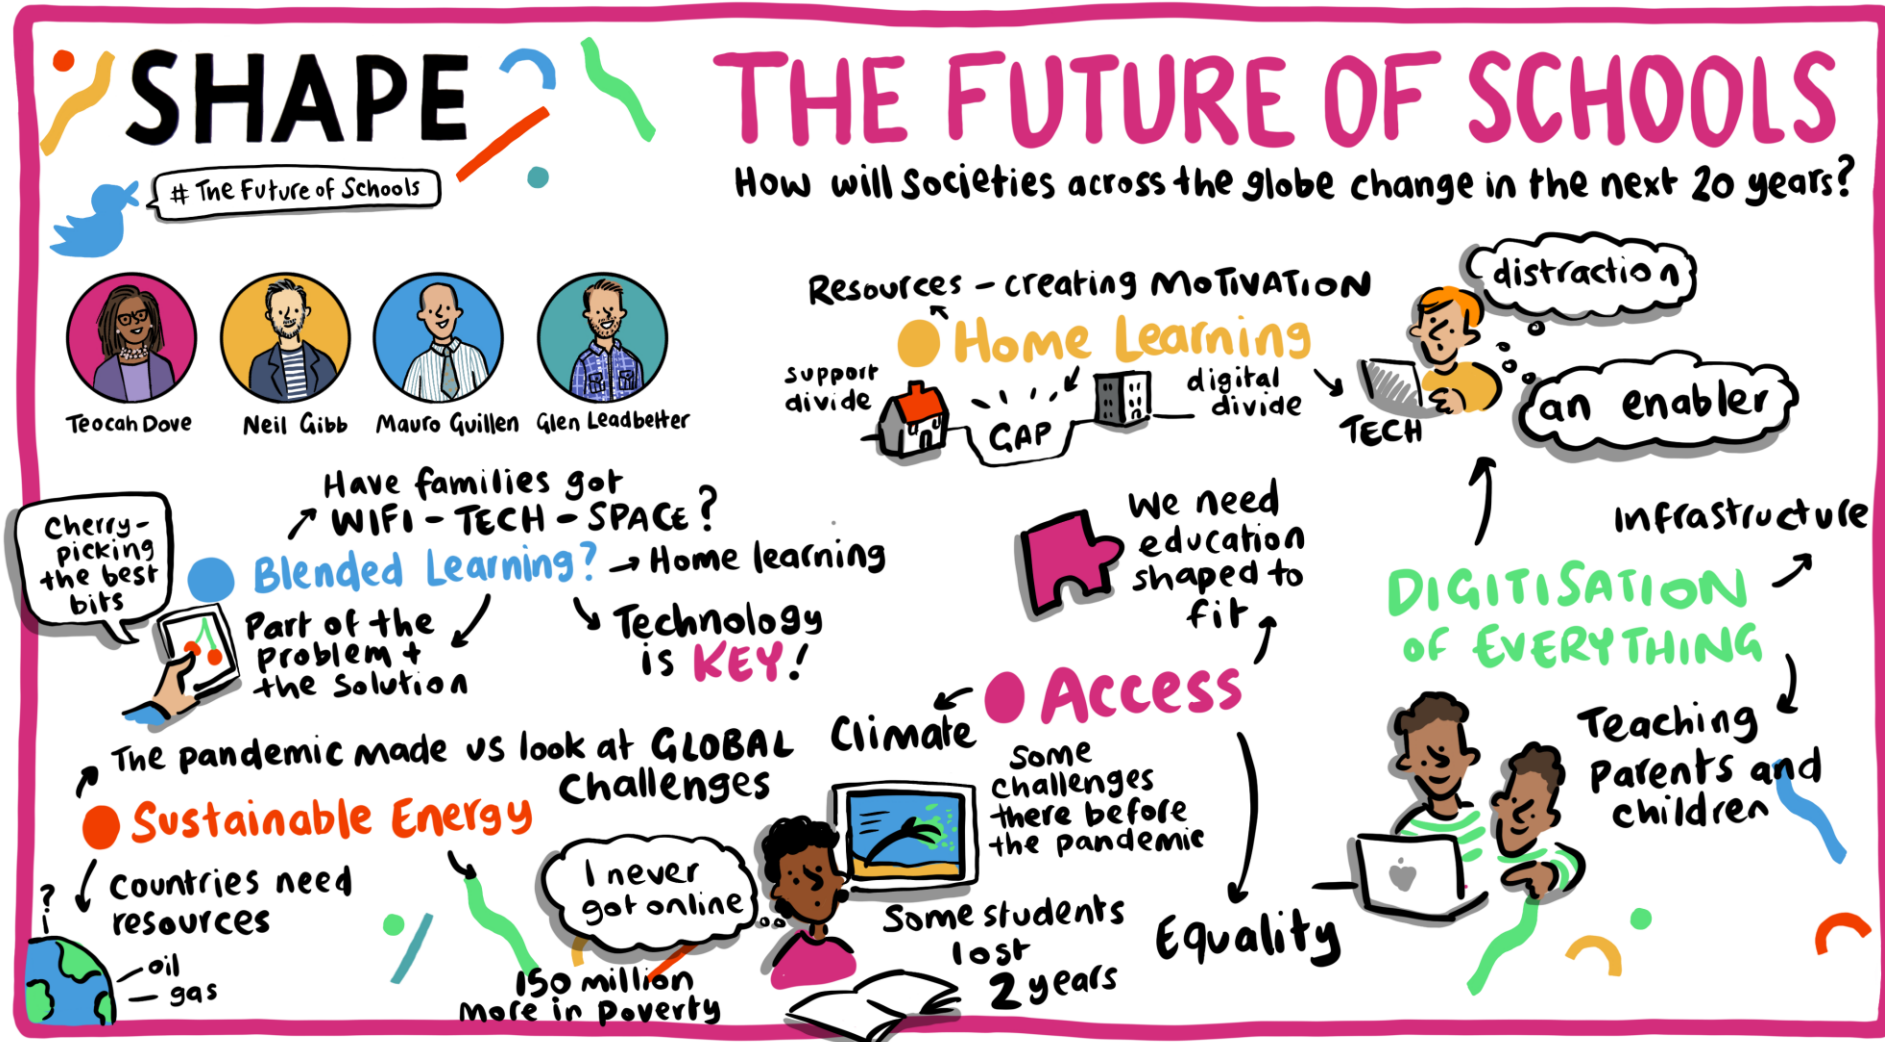 SHAPE
# The Future of Schools
THE FUTURE OF SCHOOLS
How will societies across the globe change in the next 20 years?
Teocah Dove
Neil Gibb
Mauro Guillen
Glen Leadbetter
Resources - creating MOTIVATION
Home Learning
support
divide
GAP
digital
divide
TECH
distraction
an enabler
Have families got
WIFI - TECH - SPACE?
Cherry-
picking
the best
bits
Blended Learning?
Home learning
Part of the
problem +
the solution
Technology
is KEY!
We need
education
shaped to
fit
Infrastructure
DIGITISATION
OF EVERYTHING
Teaching
parents and
children
Access
Climate
Some
challenges
there before
the pandemic
Equality
The pandemic made us look at GLOBAL
challenges
Sustainable Energy
Countries need
resources
?
oil
gas
I never
got online
150 million
more in poverty
Some students
lost
2 years